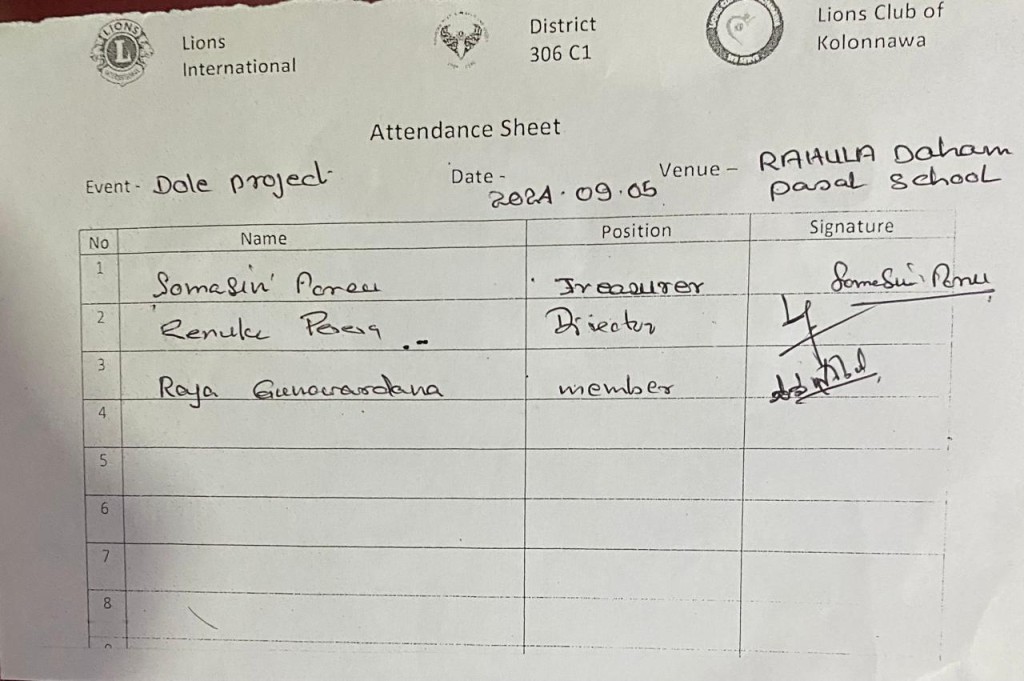 LIONS
L
INTERNATIONAL
Lions
International
District
306 C1
Lions Club of
Kolonnawa
Attendance Sheet
Event - Dole project
Date -
2024.09.05
Venue - RAHULA Daham
pasal school
No Name Position Signature
1 Treasurer
2 Renuke Perera Director
3 Raja Gunawardana member
4
5
6
7
8